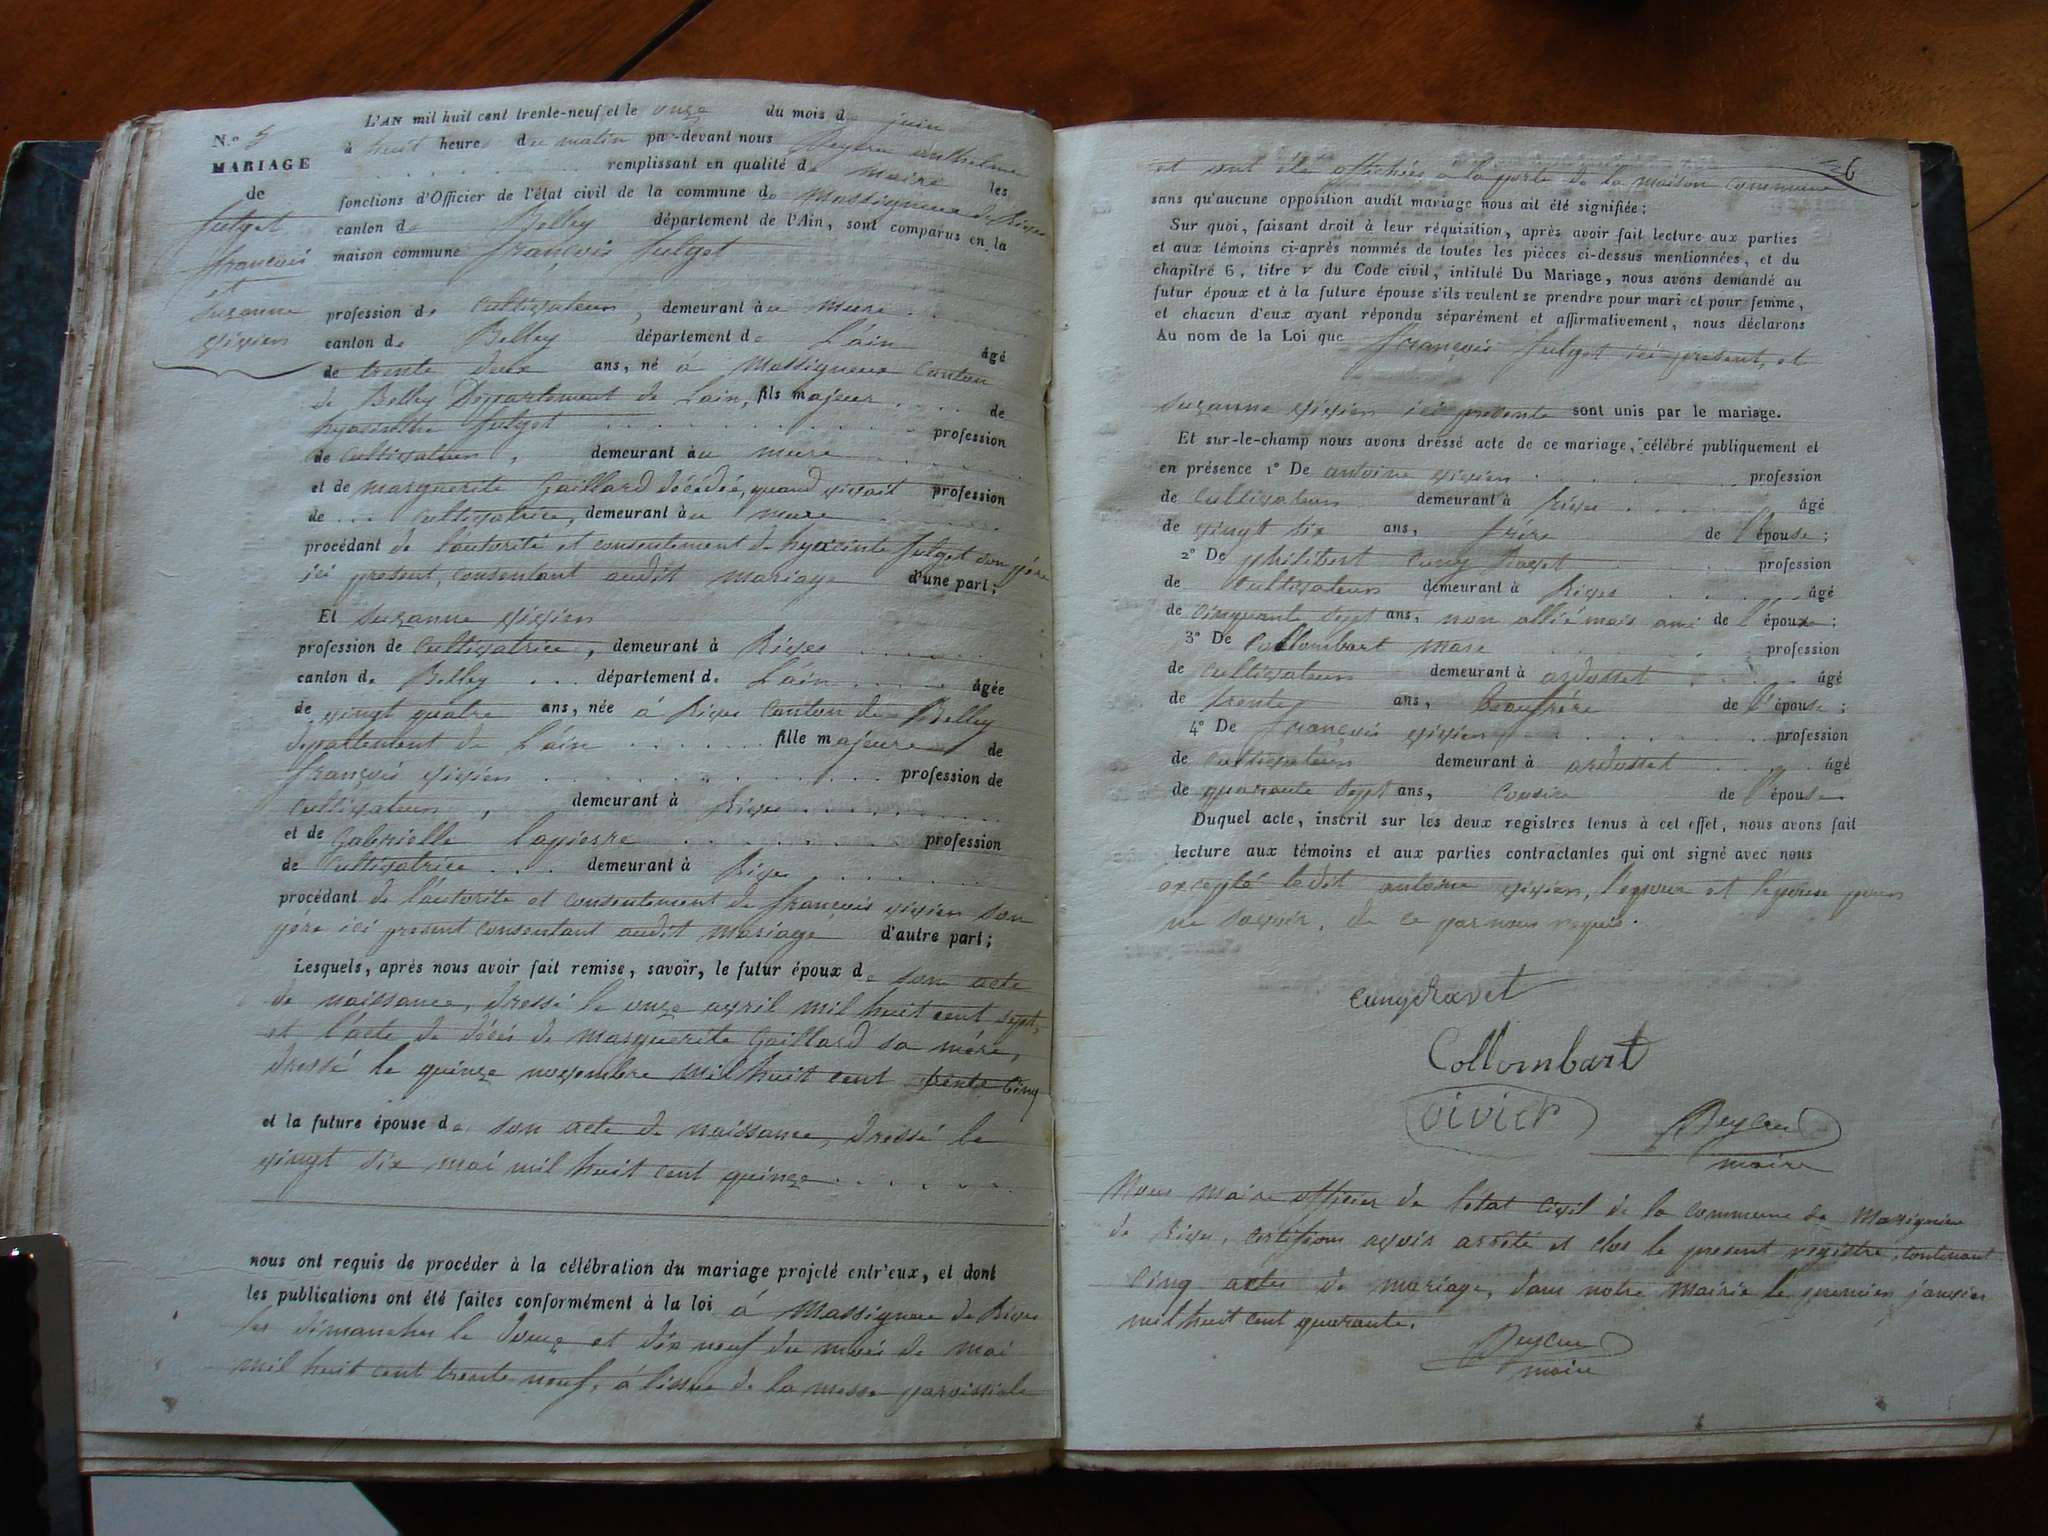 N.o 5
MARIAGE
de
fulget
françois
et
suzanne
vivien
L'AN mil huit cent trente-neuf et le onze du mois de juin
à huit heures du matin par-devant nous peyson anthelme
remplissant en qualité de maire les
fonctions d'Officier de l'état civil de la commune de Massigneux de Rives
canton de Belley département de l'Ain, sont comparus en la
maison commune françois fulget
profession de cultivateur, demeurant au mure
canton de Belley département de L'ain âgé
de trente deux ans, né à Massigneux Canton
de Belley Département de Lain, fils majeur de
hyacinthe fulget profession
de Cultivateur, demeurant au mure
et de marguerite Gaillard décédée, quand vivait profession
de cultivatrice, demeurant au mure
procédant de l'autorité et consentement de hyacinte fulget son père
ici present, consentant audit mariage d'une part;
Et suzanne vivien
profession de cultivatrice, demeurant à Rives
canton de Belley département de L'ain âgée
de vingt quatre ans, née à Rives Canton de Belley
département de L'ain fille majeure de
françois vivien profession de
cultivateur, demeurant à Rives
et de Gabrielle Lapierre profession
de Cultivatrice demeurant à Rives
procédant de l'autorité et consentement de françois vivien son
père ici present consentant audit mariage d'autre part;
Lesquels, après nous avoir fait remise, savoir, le futur époux de son acte
de naissance, dressé le onze avril mil huit cent sept,
et l'acte de décés de marguerite Gaillard sa mére,
dressé le quinze novembre mil huit cent trente cinq
et la future épouse de son acte de naissance, dressé le
vingt six mai mil huit cent quinze
nous ont requis de procéder à la célébration du mariage projeté entr'eux, et dont
les publications ont été faites conformément à la loi à Massigneux de Rives
les dimanches le douze et dix neuf du mois de mai
mil huit cent trente neuf, à l'issue de la messe paroissiale
6
et ont été affichées a la porte de la maison commune
sans qu'aucune opposition audit mariage nous ait été signifiée;
Sur quoi, faisant droit à leur réquisition, après avoir fait lecture aux parties
et aux témoins ci-après nommés de toutes les pièces ci-dessus mentionnées, et du
chapitre 6, titre v du Code civil, intitulé Du Mariage, nous avons demandé au
futur époux et à la future épouse s'ils veulent se prendre pour mari et pour femme,
et chacun d'eux ayant répondu séparément et affirmativement, nous déclarons
Au nom de la Loi que françois fulget ici present, et
suzanne vivien ici presente sont unis par le mariage.
Et sur-le-champ nous avons dressé acte de ce mariage, célébré publiquement et
en présence 1o De antoine vivien profession
de cultivateur demeurant à Rives âgé
de vingt six ans, frére de l'épouse;
2o De philibert Cuny Ravet profession
de cultivateur demeurant à Rives âgé
de cinquante sept ans, non allié mais ami de l'époux;
3o De Collombart marc profession
de cultivateur demeurant à ardosset âgé
de trente ans, beaufrére de l'épouse;
4o De françois vivien profession
de cultivateur demeurant à ardosset âgé
de quarante sept ans, cousin de l'épouse
Duquel acte, inscrit sur les deux registres tenus à cet effet, nous avons fait
lecture aux témoins et aux parties contractantes qui ont signé avec nous
excepté ledit antoine vivien, l'epoux et l'épouse pour
ne savoir, de ce par nous requis.
Cunydravet
Collombart
vivien
maire
Nous maire officier de l'état civil de la commune de Massignieu
de Rives, certifions avoir arrêté et clos le present registre, contenant
Cinq actes de mariage, dans notre Mairie le premier janvier
mil huit cent quarante.
maire